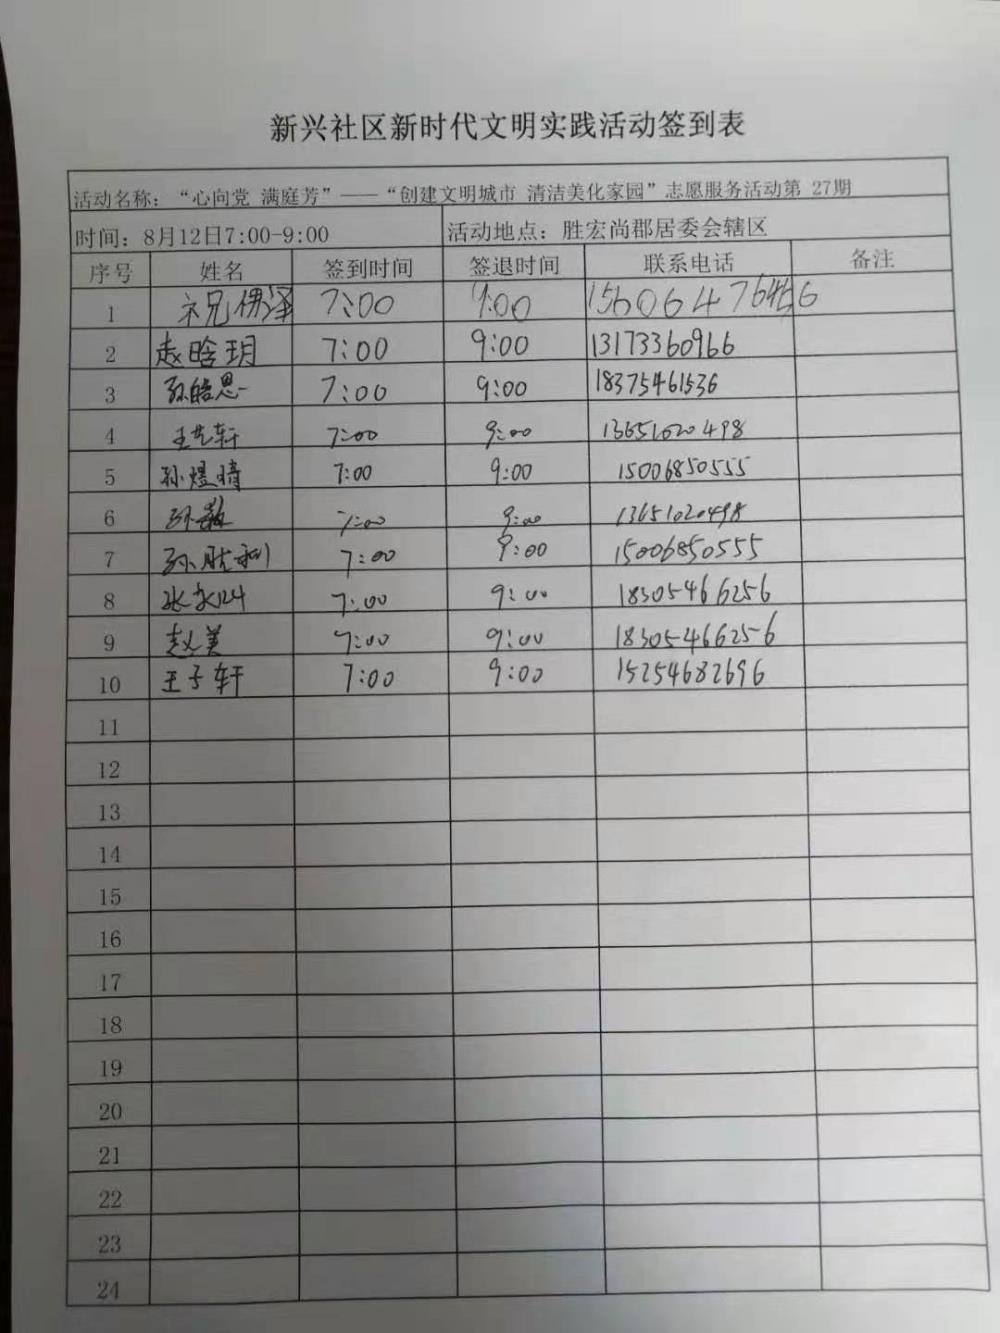 新兴社区新时代文明实践活动签到表
活动名称：“心向党 满庭芳”——“创建文明城市 清洁美化家园”志愿服务活动第 27期
时间：8月12日7:00-9:00 活动地点：胜宏尚郡居委会辖区
序号 姓名 签到时间 签退时间 联系电话 备注
1 祝偊泽 7:00 9:00
2 赵晗玥 7:00 9:00 13173360966
3 孙皓思 7:00 9:00 18375461536
4 王艺轩 7:00 9:00 13651020498
5 孙煜晴 7:00 9:00 15006850555
6 孙 7:00 9:00 13651020498
7 孙胜利 7:00 9:00 15006850555
8 张 7:00 9:00 18305466256
9 赵美 7:00 9:00 18305466256
10 王子轩 7:00 9:00 15254682696
11
12
13
14
15
16
17
18
19
20
21
22
23
24